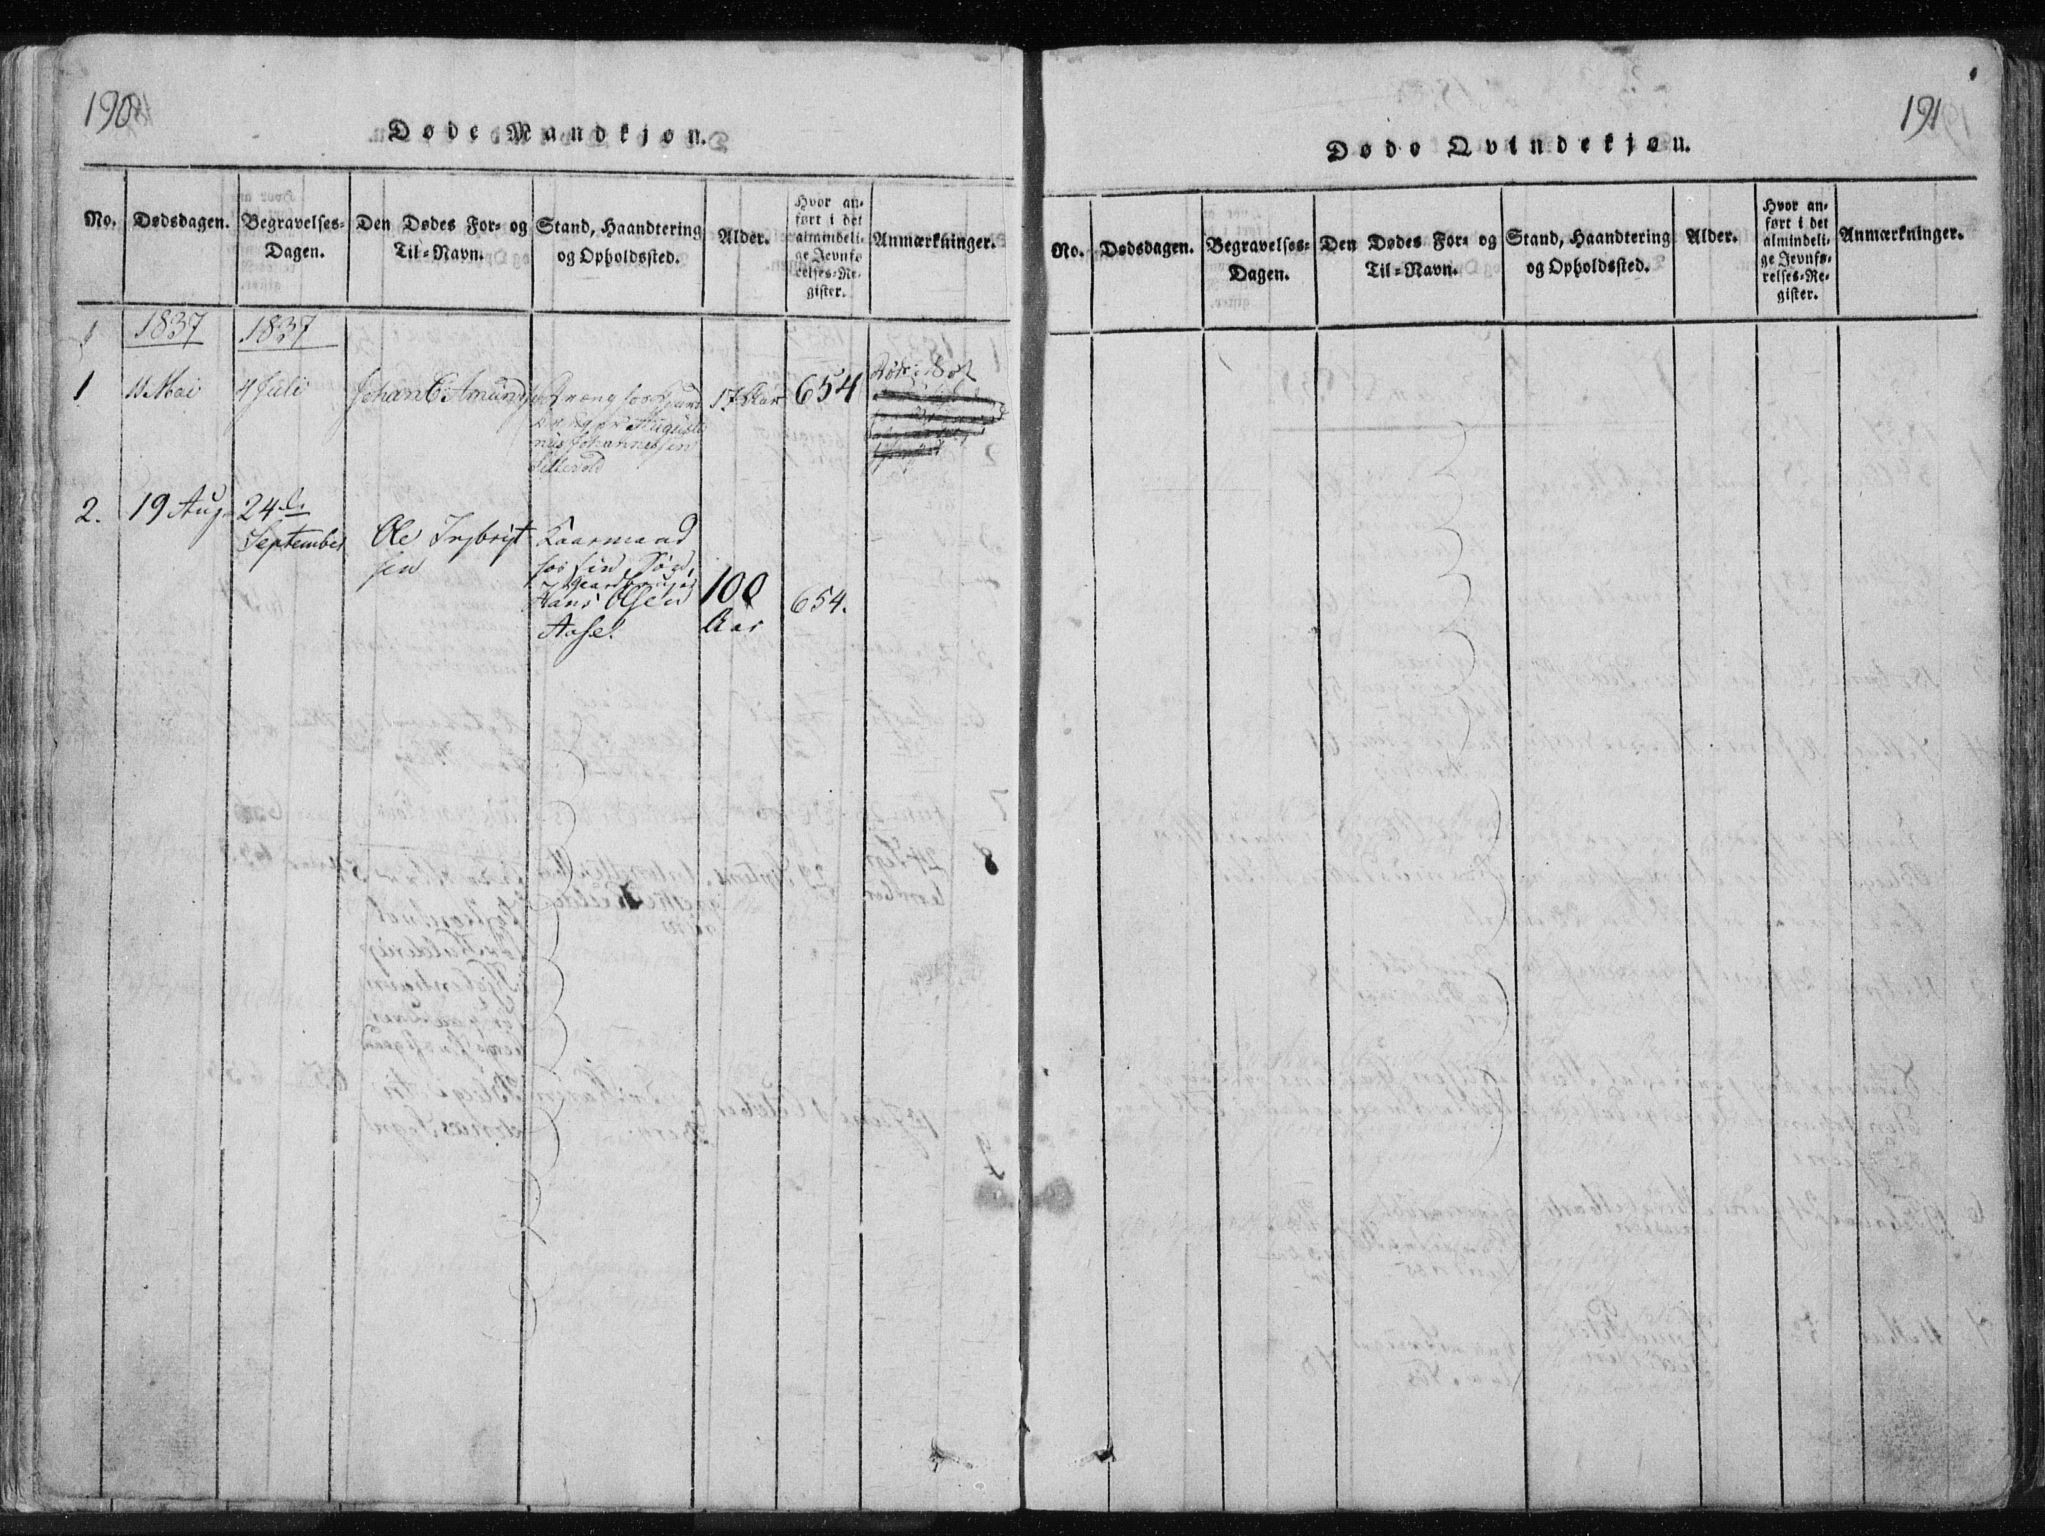 190
Døde Mandkjøn.
No.
Dødsdagen.
Begravelses-
Dagen.
Den Dødes For- og
Til-Navn.
Stand, Haandtering
og Opholdssted.
Alder.
Hvor an-
ført i det
almindeli-
ge Jevnfø-
relses-Re-
gister.
Anmærkninger.
1837
1837
1
11 Mai
4 Juli
Johan C. Amunds
17 Aar
654
2.
19 Aug.
24de
September
Ole Ingbrigt
sen
Kaarmand
hos sin Søn,
Gaardbruger
Hans Olsen
Aasel.
100
Aar
654.
191
Døde Qvindekjøn.
No.
Dødsdagen.
Begravelses-
Dagen.
Den Dødes For- og
Til-Navn.
Stand, Haandtering
og Opholdssted.
Alder.
Hvor an-
ført i det
almindeli-
ge Jevnfø-
relses-Re-
gister.
Anmærkninger.